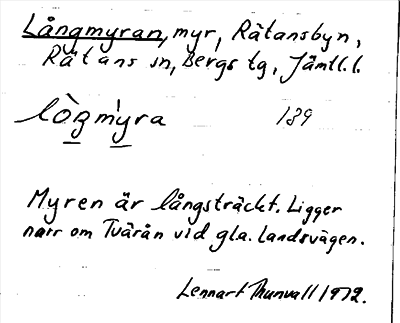 Långmyran, myr, Rätansbyn,
Rätans sn, Bergs tg, Jämtl. l.
lògmyra 189
Myren är långsträckt. Ligger
narr om Tvärån vid gla. landsvägen.
Lennart Thunvall 1972.